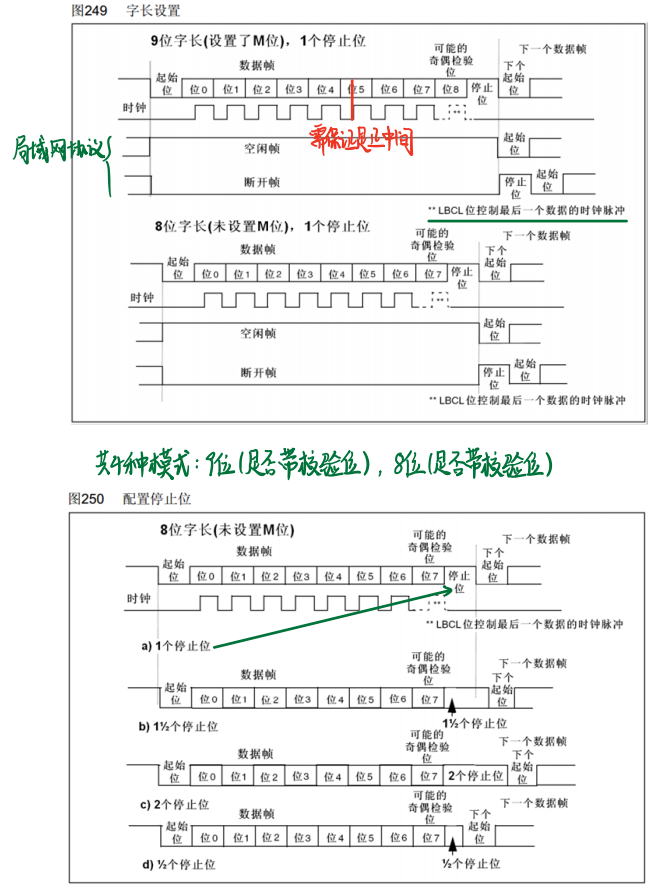 图249 字长设置
9位字长(设置了M位)，1个停止位
数据帧
可能的
奇偶检验
位
下一个数据帧
起始
位
位0
位1
位2
位3
位4
位5
位6
位7
位8
停止
位
下个
起始
位
时钟
**
需保证是正中间
局域网协议
空闲帧
起始
位
断开帧
停止
位
起始
位
** LBCL位控制最后一个数据的时钟脉冲
8位字长(未设置M位)，1个停止位
数据帧
可能的
奇偶检验
位
下一个数据帧
起始
位
位0
位1
位2
位3
位4
位5
位6
位7
停止
位
下个
起始
位
时钟
**
空闲帧
起始
位
断开帧
停止
位
起始
位
** LBCL位控制最后一个数据的时钟脉冲
共4种模式：9位(是否带校验位)，8位(是否带校验位)
图250 配置停止位
8位字长(未设置M位)
数据帧
可能的
奇偶检验
位
下一个数据帧
起始
位
位0
位1
位2
位3
位4
位5
位6
位7
停止
位
下个
起始
位
时钟
**
** LBCL位控制最后一个数据的时钟脉冲
a) 1个停止位
数据帧
可能的
奇偶检验
位
下一个数据帧
起始
位
位0
位1
位2
位3
位4
位5
位6
位7
下个
起始
位
b) 1½个停止位
1½个停止位
数据帧
可能的
奇偶检验
位
下一个数据帧
起始
位
位0
位1
位2
位3
位4
位5
位6
位7
2个停止位
下个
起始
位
c) 2个停止位
数据帧
可能的
奇偶检验
位
下一个数据帧
起始
位
位0
位1
位2
位3
位4
位5
位6
位7
下个
起始
位
d) ½个停止位
½个停止位